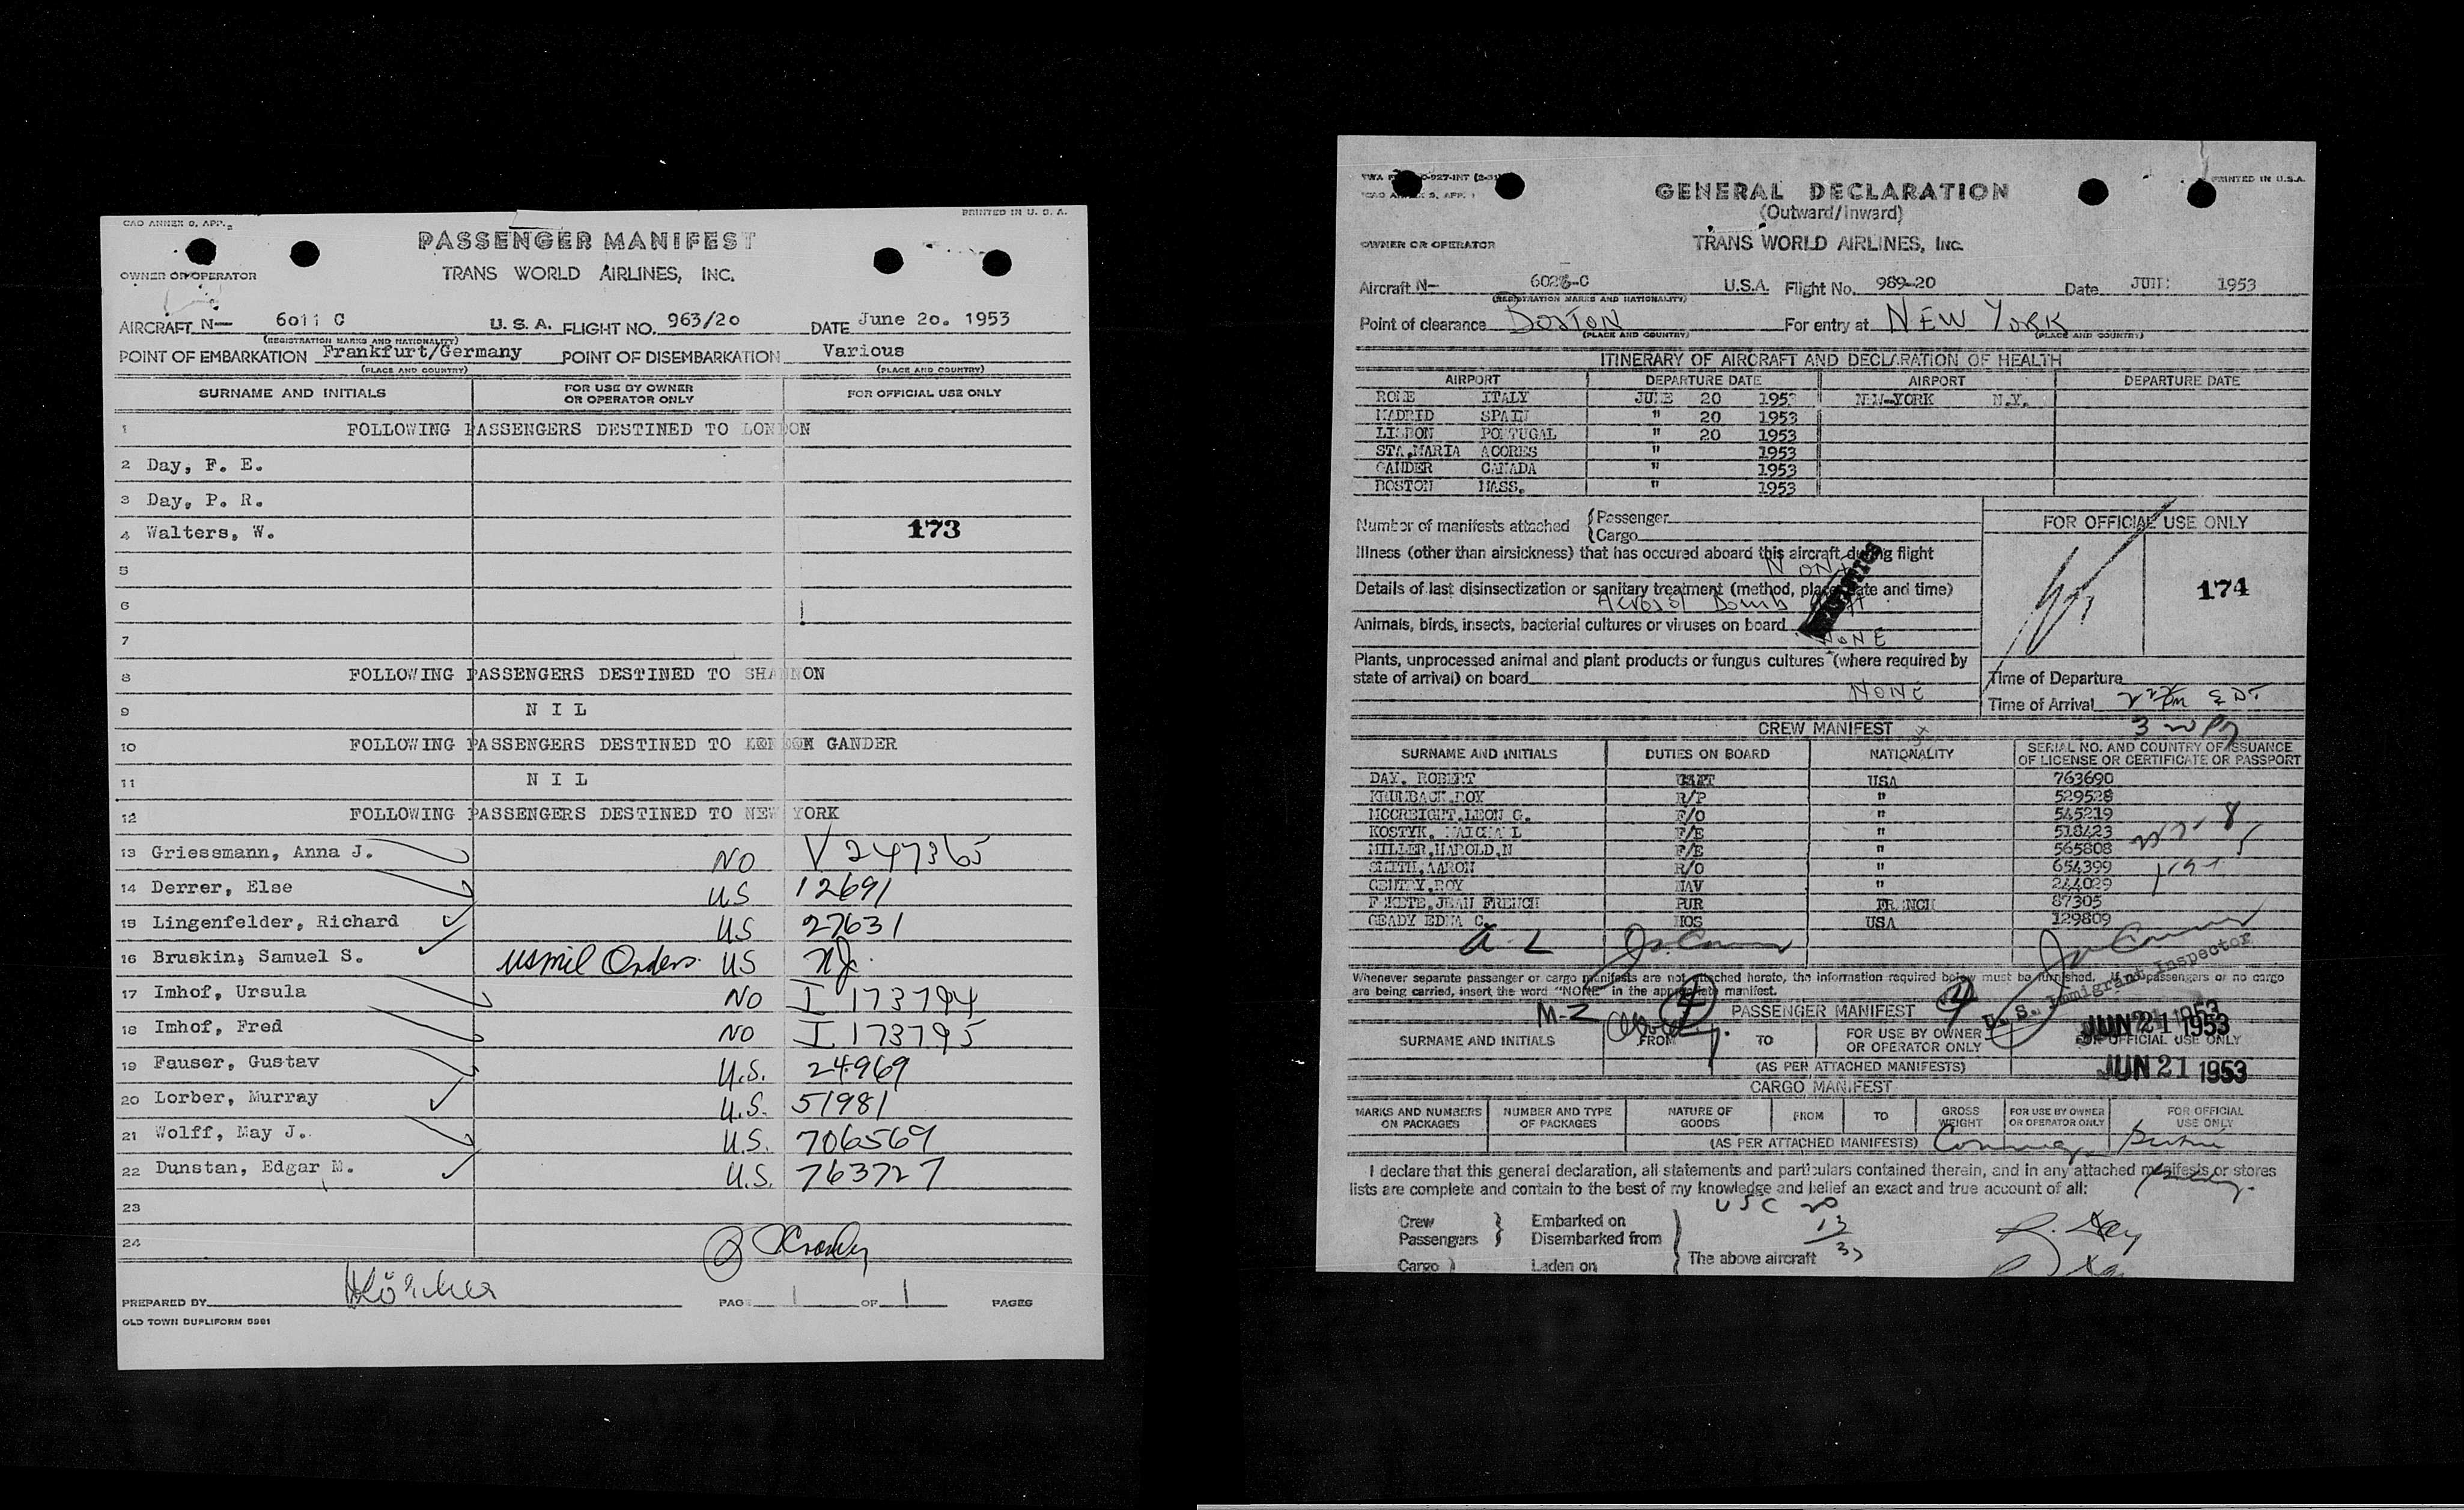 CAO ANNEX 9, APP. 2
PRINTED IN U. S. A.
PASSENGER MANIFEST
OWNER OR OPERATOR
TRANS WORLD AIRLINES, INC.
AIRCRAFT N— 6011 C U. S. A. FLIGHT NO. 963/20 DATE June 20. 1953
(REGISTRATION MARKS AND NATIONALITY)
POINT OF EMBARKATION Frankfurt/Germany POINT OF DISEMBARKATION Various
(PLACE AND COUNTRY) (PLACE AND COUNTRY)
SURNAME AND INITIALS FOR USE BY OWNER OR OPERATOR ONLY FOR OFFICIAL USE ONLY
1 FOLLOWING PASSENGERS DESTINED TO LONDON
2 Day, F. E.
3 Day, P. R.
4 Walters, W. 173
5
6
7
8 FOLLOWING PASSENGERS DESTINED TO SHANNON
9 N I L
10 FOLLOWING PASSENGERS DESTINED TO GANDER
11 N I L
12 FOLLOWING PASSENGERS DESTINED TO NEW YORK
13 Griessmann, Anna J. NO V 247365
14 Derrer, Else US 12691
15 Lingenfelder, Richard US 27631
16 Bruskin, Samuel S. usmil Orders. US
17 Imhof, Ursula NO I 173794
18 Imhof, Fred NO I 173795
19 Fauser, Gustav U.S. 24969
20 Lorber, Murray U.S. 51981
21 Wolff, May J. U.S. 706569
22 Dunstan, Edgar M. U.S. 763727
23
24
PREPARED BY PAGE 1 OF 1 PAGES
OLD TOWN DUPLIFORM 5981
PRINTED IN U.S.A.
GENERAL DECLARATION
(Outward/Inward)
OWNER OR OPERATOR TRANS WORLD AIRLINES, INC.
Aircraft N— U.S.A. Flight No. 989-20 Date 1953
(REGISTRATION MARKS AND NATIONALITY)
Point of clearance BOSTON For entry at NEW YORK
(PLACE AND COUNTRY) (PLACE AND COUNTRY)
ITINERARY OF AIRCRAFT AND DECLARATION OF HEALTH
AIRPORT DEPARTURE DATE AIRPORT DEPARTURE DATE
ROME ITALY JUNE 20 1953 NEW-YORK N.Y.
MADRID SPAIN " 20 1953
LISBON PORTUGAL " 20 1953
STA.MARIA ACORES " 1953
GANDER CANADA " 1953
BOSTON MASS. " 1953
Number of manifests attached { Passenger
Cargo
FOR OFFICIAL USE ONLY
Illness (other than airsickness) that has occured aboard this aircraft during flight
NONE
Details of last disinsectization or sanitary treatment (method, place, date and time)
Aerosol Bomb
174
Animals, birds, insects, bacterial cultures or viruses on board NONE
Plants, unprocessed animal and plant products or fungus cultures (where required by
state of arrival) on board NONE
Time of Departure
Time of Arrival
CREW MANIFEST
SURNAME AND INITIALS DUTIES ON BOARD NATIONALITY SERIAL NO. AND COUNTRY OF ISSUANCE OF LICENSE OR CERTIFICATE OR PASSPORT
DAY. ROBERT USA 763690
KRUMBACK.ROY R/P " 529528
MCCREIGHT.LEON G. F/O " 545219
KOSTYK. F/E " 518423
MILLER,HAROLD,N F/E " 565808
SMITH,AARON R/O " 654399
GENTRY,ROY NAV " 244029
FEKETE,JEAN FRENCH PUR FRENCH 87305
GEADY EDNA C. HOS USA 129809
Whenever separate passenger or cargo manifests are not attached hereto, the information required below must be furnished. If no passengers or no cargo
are being carried, insert the word "NONE" in the appropriate manifest.
U. S. Immigrant Inspector
M-Z PASSENGER MANIFEST
JUN 21 1953
SURNAME AND INITIALS FROM TO FOR USE BY OWNER OR OPERATOR ONLY FOR OFFICIAL USE ONLY
(AS PER ATTACHED MANIFESTS) JUN 21 1953
CARGO MANIFEST
MARKS AND NUMBERS ON PACKAGES NUMBER AND TYPE OF PACKAGES NATURE OF GOODS FROM TO GROSS WEIGHT FOR USE BY OWNER OR OPERATOR ONLY FOR OFFICIAL USE ONLY
(AS PER ATTACHED MANIFESTS)
I declare that this general declaration, all statements and particulars contained therein, and in any attached manifests or stores
lists are complete and contain to the best of my knowledge and belief an exact and true account of all:
USC 20
13
Crew Embarked on
Passengers Disembarked from
The above aircraft
Cargo Laden on
R. Day